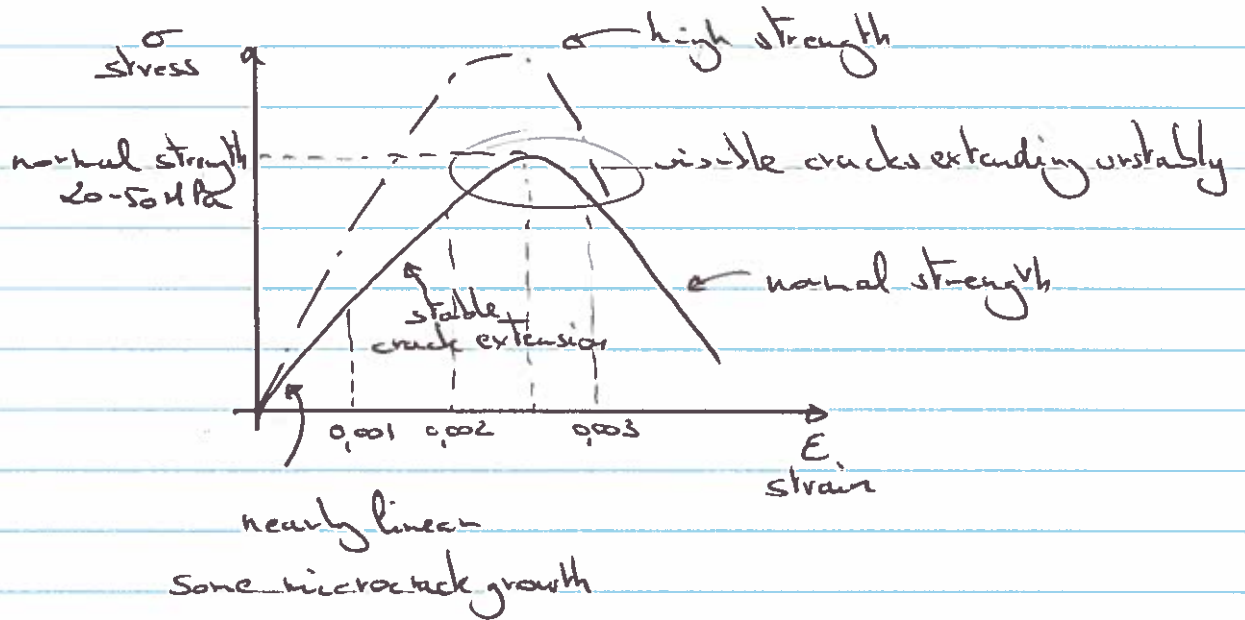 σ
stress
high strength
normal strength
20-50 MPa
visible cracks extending unstably
normal strength
stable
crack extension
0,001 0,002 0,003
ε
strain
nearly linear
Some microcrack growth